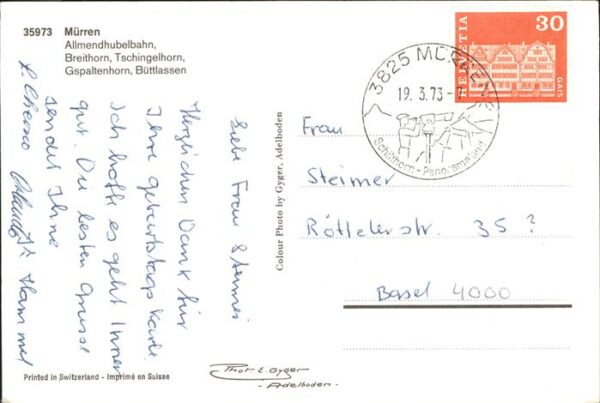 35973 Mürren
Allmendhubelbahn,
Breithorn, Tschingelhorn,
Gspaltenhorn, Büttlassen
Liebe Frau Steimer
Herzlichen Dank für
Ihre geburtstags Karte.
Ich hoffe es geht Ihnen
gut. Die besten Grüsse
sendet Ihne
Hammel
Colour Photo by Gyger, Adelboden
HELVETIA
30
GAIS
3825 MÜRREN
19. 3. 73 -
Schilthorn - Panorama
Frau
Steimer
Röttelerstr. 35 ?
Basel 4000
Printed in Switzerland - Imprimé en Suisse
Phot. E. Gyger
- Adelboden -